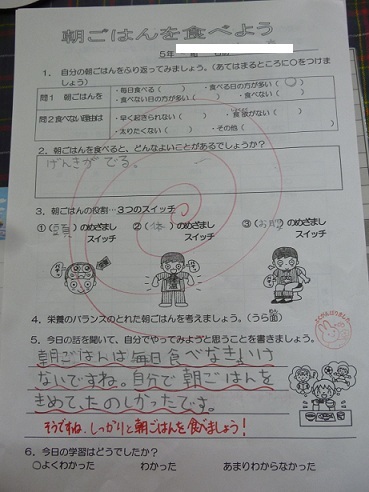 朝ごはんを食べよう
5年
1. 自分の朝ごはんをふり返ってみましょう。(あてはまるところに○をつけましょう)
問1 朝ごはんを ・毎日食べる( ) ・食べる日の方が多い(○)
・食べない日の方が多い( ) ・食べない( )
問2 食べない理由は ・早く起きられない( ) ・食欲がない( )
・太りたくない( ) ・その他( )
2. 朝ごはんを食べると、どんなよいことがあるでしょうか?
げんきがでる。
3. 朝ごはんの役割…3つのスイッチ
①(頭)のめざましスイッチ ②(体)のめざましスイッチ ③(お腹)のめざましスイッチ
4. 栄養のバランスのとれた朝ごはんを考えましょう。(うら面)
5. 今日の話を聞いて、自分でやってみようと思うことを書きましょう。
朝ごはんは毎日食べなきゃいけ
ないですね。自分で朝ごはんを
きめて、たのしかったです。
そうですね。しっかりと朝ごはんを食べましょう!
6. 今日の学習はどうでしたか?
○よくわかった わかった あまりわからなかった